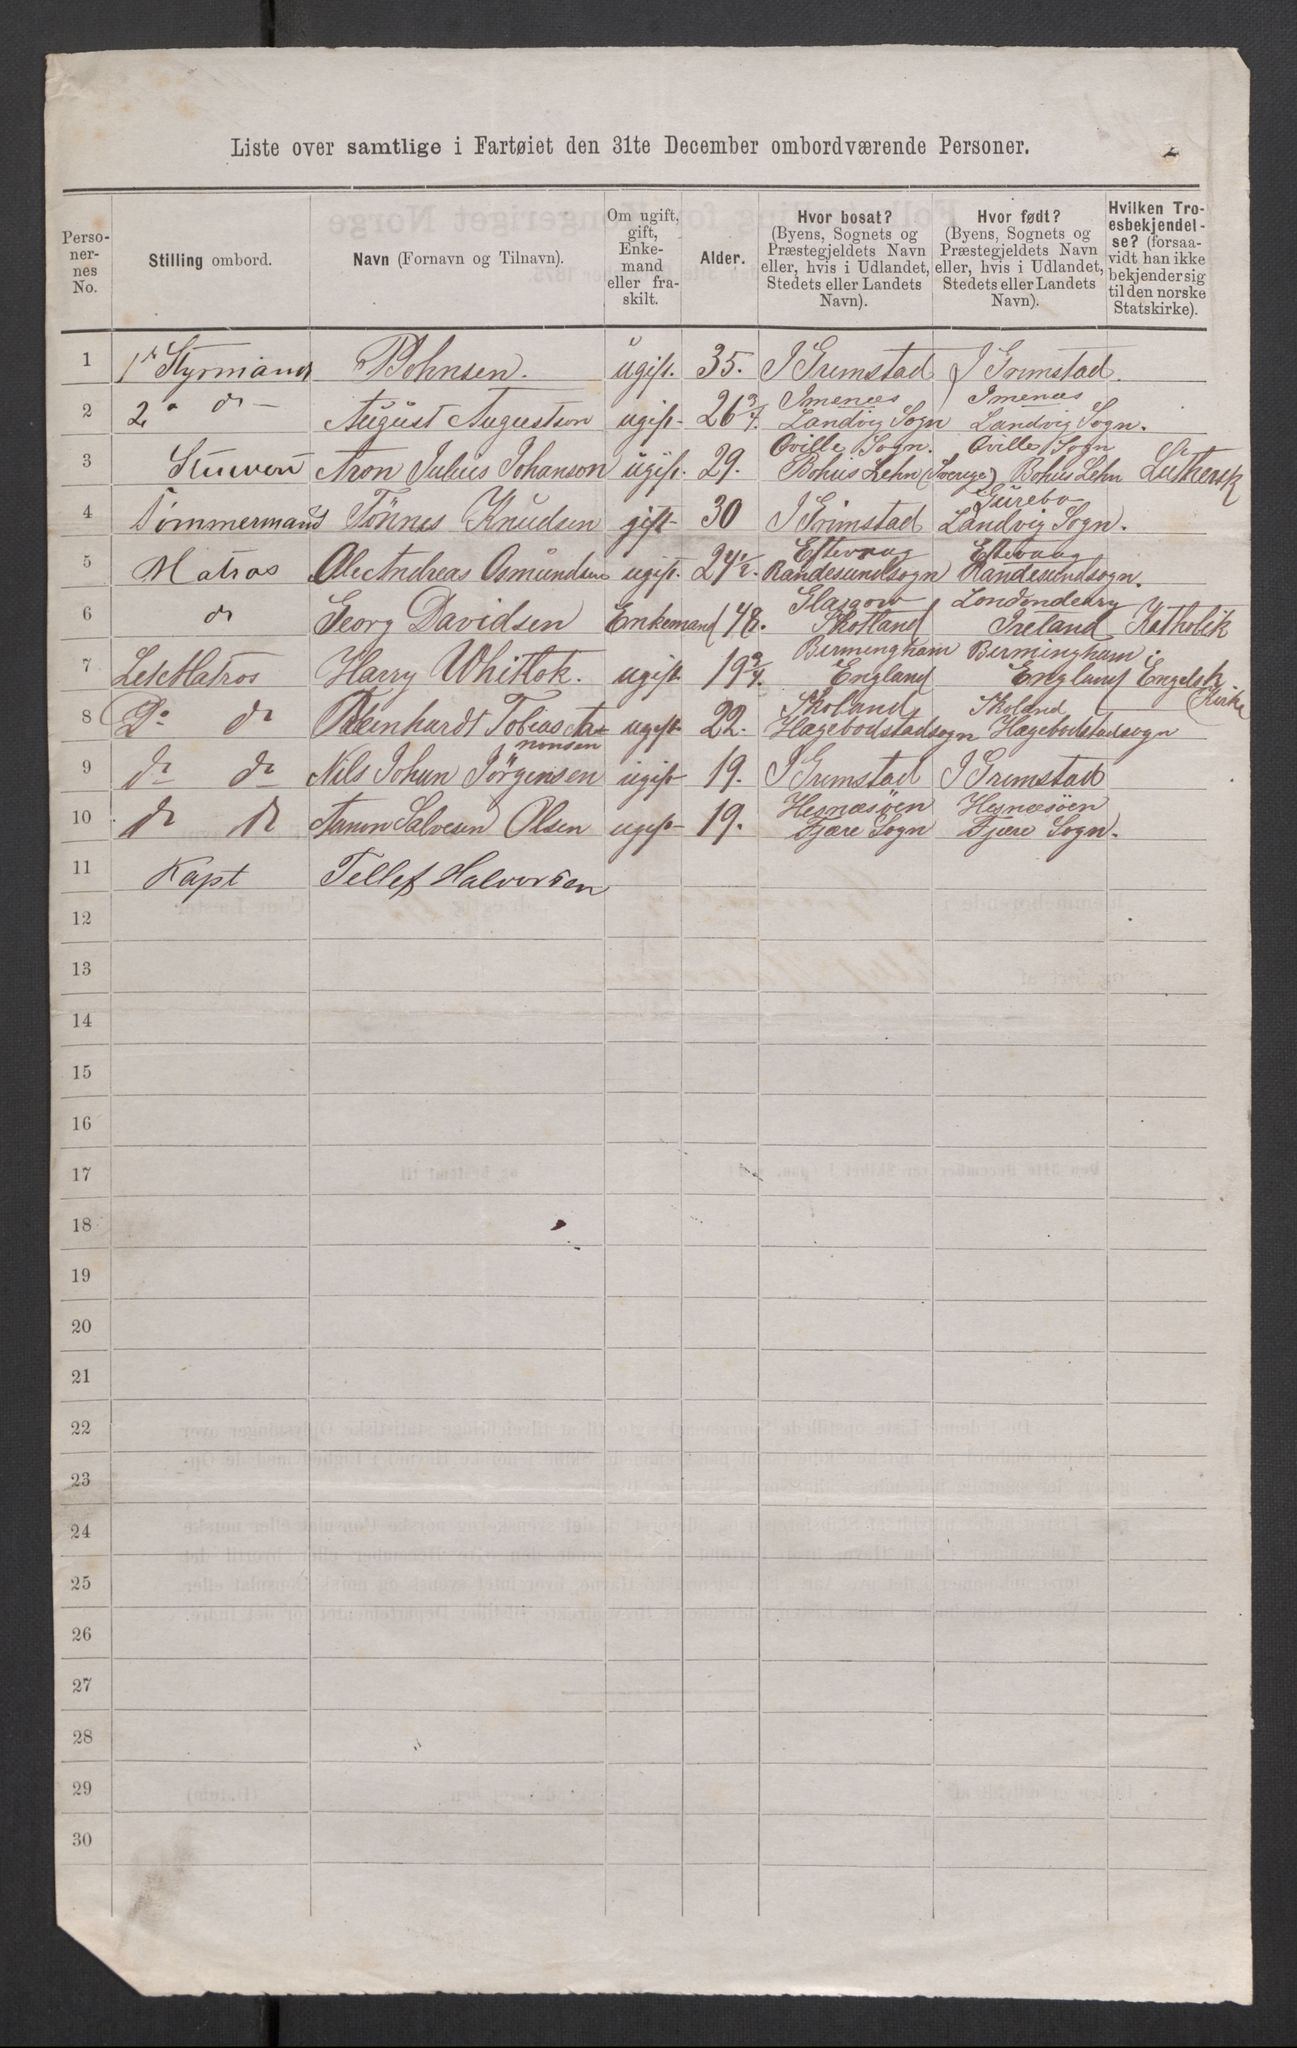 Liste over samtlige i Fartøiet den 31te December ombordværende Personer.
2
Perso-
ner-
nes
No.
Stilling ombord.
Navn (Fornavn og Tilnavn).
Om ugift,
gift,
Enke-
mand
eller fra-
skilt.
Alder.
Hvor bosat?
(Byens, Sognets og
Præstegjeldets Navn
eller, hvis i Udlandet,
Stedets eller Landets
Navn).
Hvor født?
(Byens, Sognets og
Præstegjeldets Navn
eller, hvis i Udlandet,
Stedets eller Landets
Navn).
Hvilken Tro-
esbekjendel-
se? (forsaa-
vidt han ikke
bekjender sig
til den norske
Statskirke).
1 1ste Styrmand Johnsen. ugift. 35. I Grimstad I Grimstad.
Imenæs Imenæs
2 2 do August Augustson ugift 26 3/4. Landvig Sogn Landvig Sogn.
Oville Sogn. Oville Sogn
3 Stuvert Aron Julius Johanson ugift. 29. Bohus Lehn (Sverige) Bohus Lehn Luthersk
Gurebo
4 Tømmermand Tönnes Knudsen gift 30 I Grimstad Landvig Sogn.
Eftevaag Eftevaag
5 Matros Ole Andreas Osmundsen ugift. 24 1/2. Randesundsogn Randesundsogn.
Glasgow Londonderry
6 do Georg Davidsen Enkemand 48. Skotland Ireland Katholik
Birmingham Birmingham.
7 Let Matros Harry Whitlok. ugift 19 3/4. England England Engelsk
Kirke
Skoland Skoland
8 Do do Reinhardt Tobias Aa- ugift 22. Hægebodstadsogn Hægebodstadsogn
nonsen
9 do do Nils Johan Jörgensen ugift 19. I Grimstad I Grimstad
Hesnæsöen Hesnæsöen
10 do do Aanon Salvesen Olsen ugift 19. Fjære Sogn Fjære Sogn.
11 Kapt Tellef Halvorsen
12
13
14
15
16
17
18
19
20
21
22
23
24
25
26
27
28
29
30